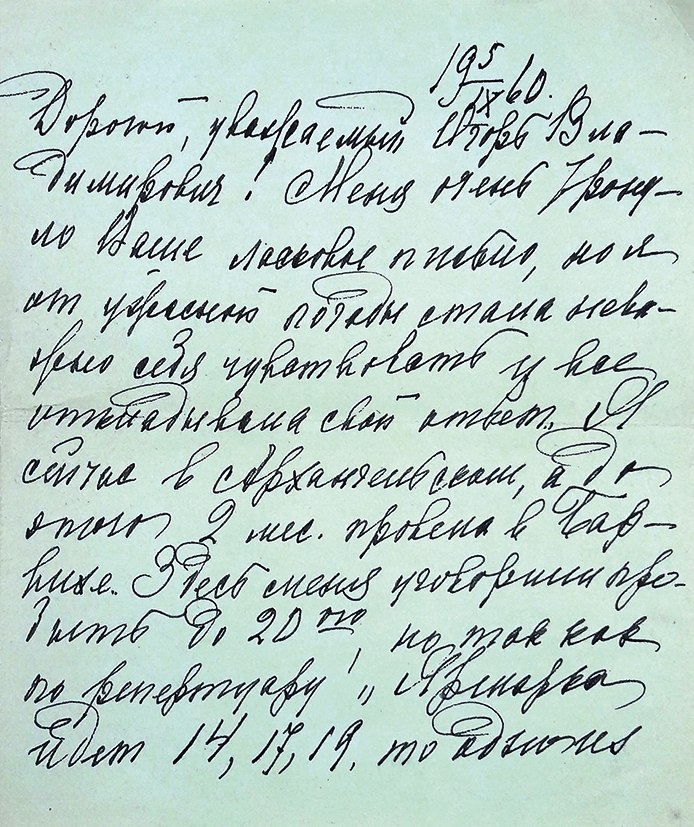 19 5/IX 60.
Дорогой, уважаемый Игорь Вла-
димирович! Меня очень трону-
ло Ваше ласковое письмо, но я
от ужасной погоды стала нева-
жно себя чувствовать и все
откладывала свой ответ. Я
сейчас в Архангельском, а до
этого 2 мес. провела в Бар-
вихе. Здесь меня уговорили про-
быть до 20ого, но так как
по репертуару „Ярмарка
идет 14, 17, 19, то